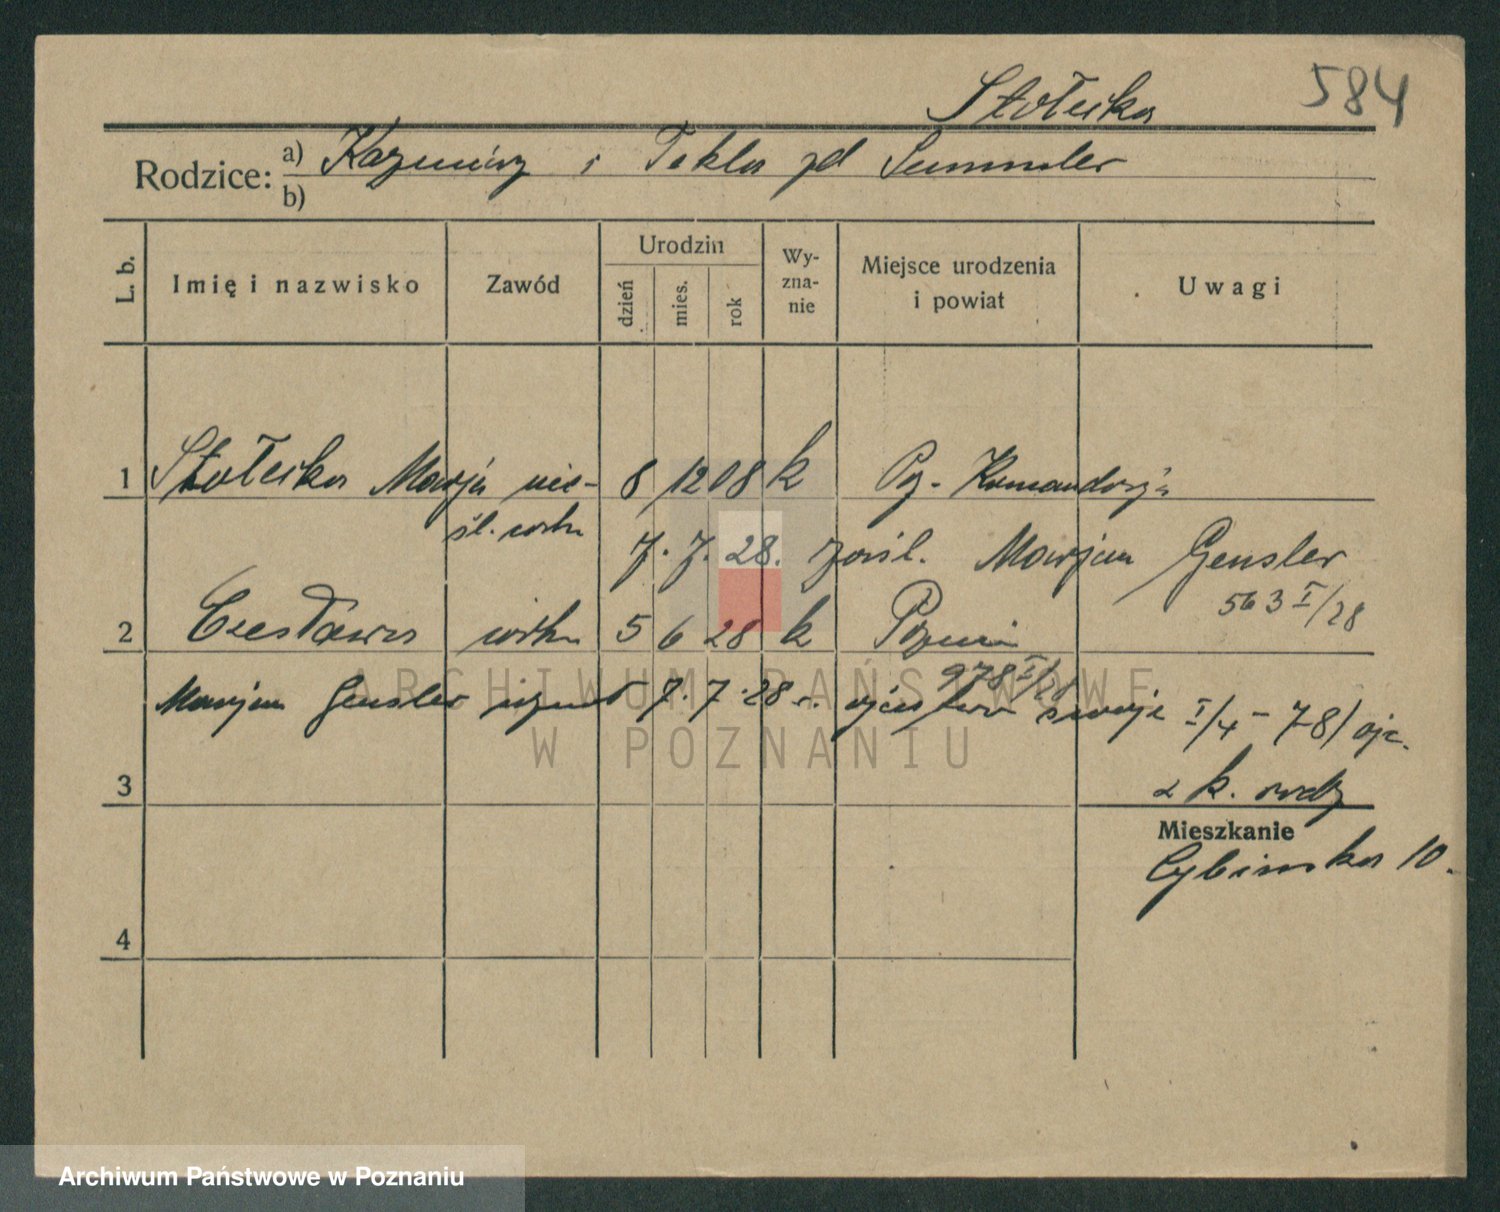 584
Stołecka
Rodzice: a) Kazimierz i Tekla zd Semmler
b)
L. b. Imię i nazwisko Zawód Urodzin dzień mies. rok Wyznanie Miejsce urodzenia i powiat Uwagi
1 Stołecka Marja nie- 8 12 08 k Pozn. Komandorja
śl. córka
7. 7. 28. zaśl. Marjan Gensler
563 I/28
2 Czesława córka 5 6 28 k Poznań
978 I/28
Marjan Gensler uznał 7. 7. 28 r. ojcostwo swoje I/4 - 78/ ojc.
3 k. rodz
Mieszkanie
Cybińska 10.
4
ARCHIWUM PAŃSTWOWE
W POZNANIU
Archiwum Państwowe w Poznaniu